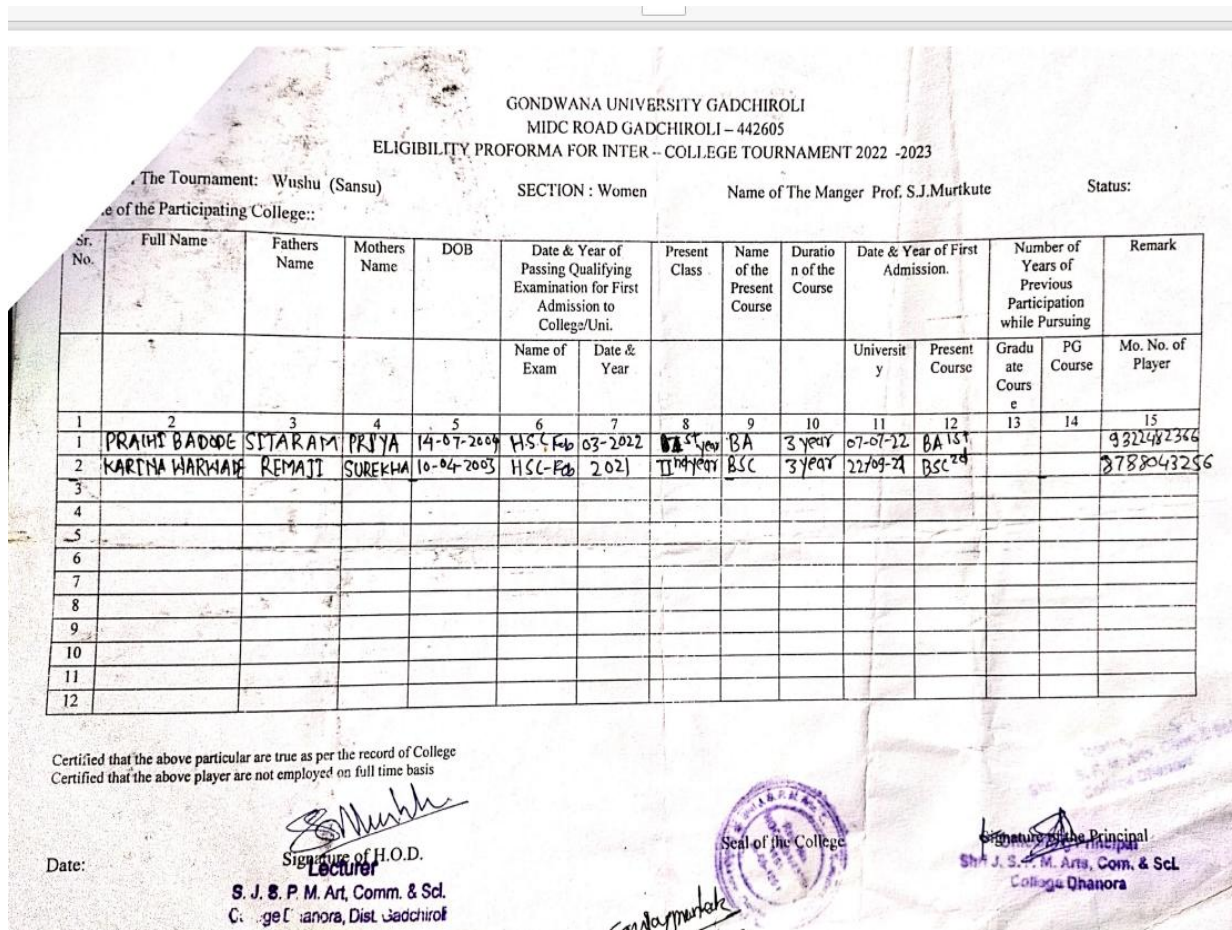 GONDWANA UNIVERSITY GADCHIROLI
MIDC ROAD GADCHIROLI – 442605
ELIGIBILITY PROFORMA FOR INTER – COLLEGE TOURNAMENT 2022 -2023
The Tournament: Wushu (Sansu) SECTION : Women Name of The Manger Prof. S.J.Murtkute Status:
of the Participating College::
Sr. No. Full Name Fathers Name Mothers Name DOB Date & Year of Passing Qualifying Examination for First Admission to College/Uni. Present Class Name of the Present Course Duratio n of the Course Date & Year of First Admission. Number of Years of Previous Participation while Pursuing Remark
Name of Exam Date & Year Universit y Present Course Gradu ate Cours e PG Course Mo. No. of Player
1 2 3 4 5 6 7 8 9 10 11 12 13 14 15
1 PRACHI BADODE SITARAM PRIYA 14-07-2004 HSC Feb 03-2022 Ist year BA 3 year 07-07-22 BA Ist 9322482366
2 KARINA WARWADE REMAJI SUREKHA 10-04-2003 HSC-Feb 2021 IInd year BSC 3 year 22/09-21 BSC 2d 8788043256
3
4
5
6
7
8
9
10
11
12
Certified that the above particular are true as per the record of College
Certified that the above player are not employed on full time basis
Date: Signature of H.O.D. Seal of the College Signature of the Principal
Lecturer
S. J. S. P. M. Art, Comm. & Scl.
Dist. Gadchiroli
Principal
Shri J. S. P. M. Arts, Com. & Scl.
College Dhanora